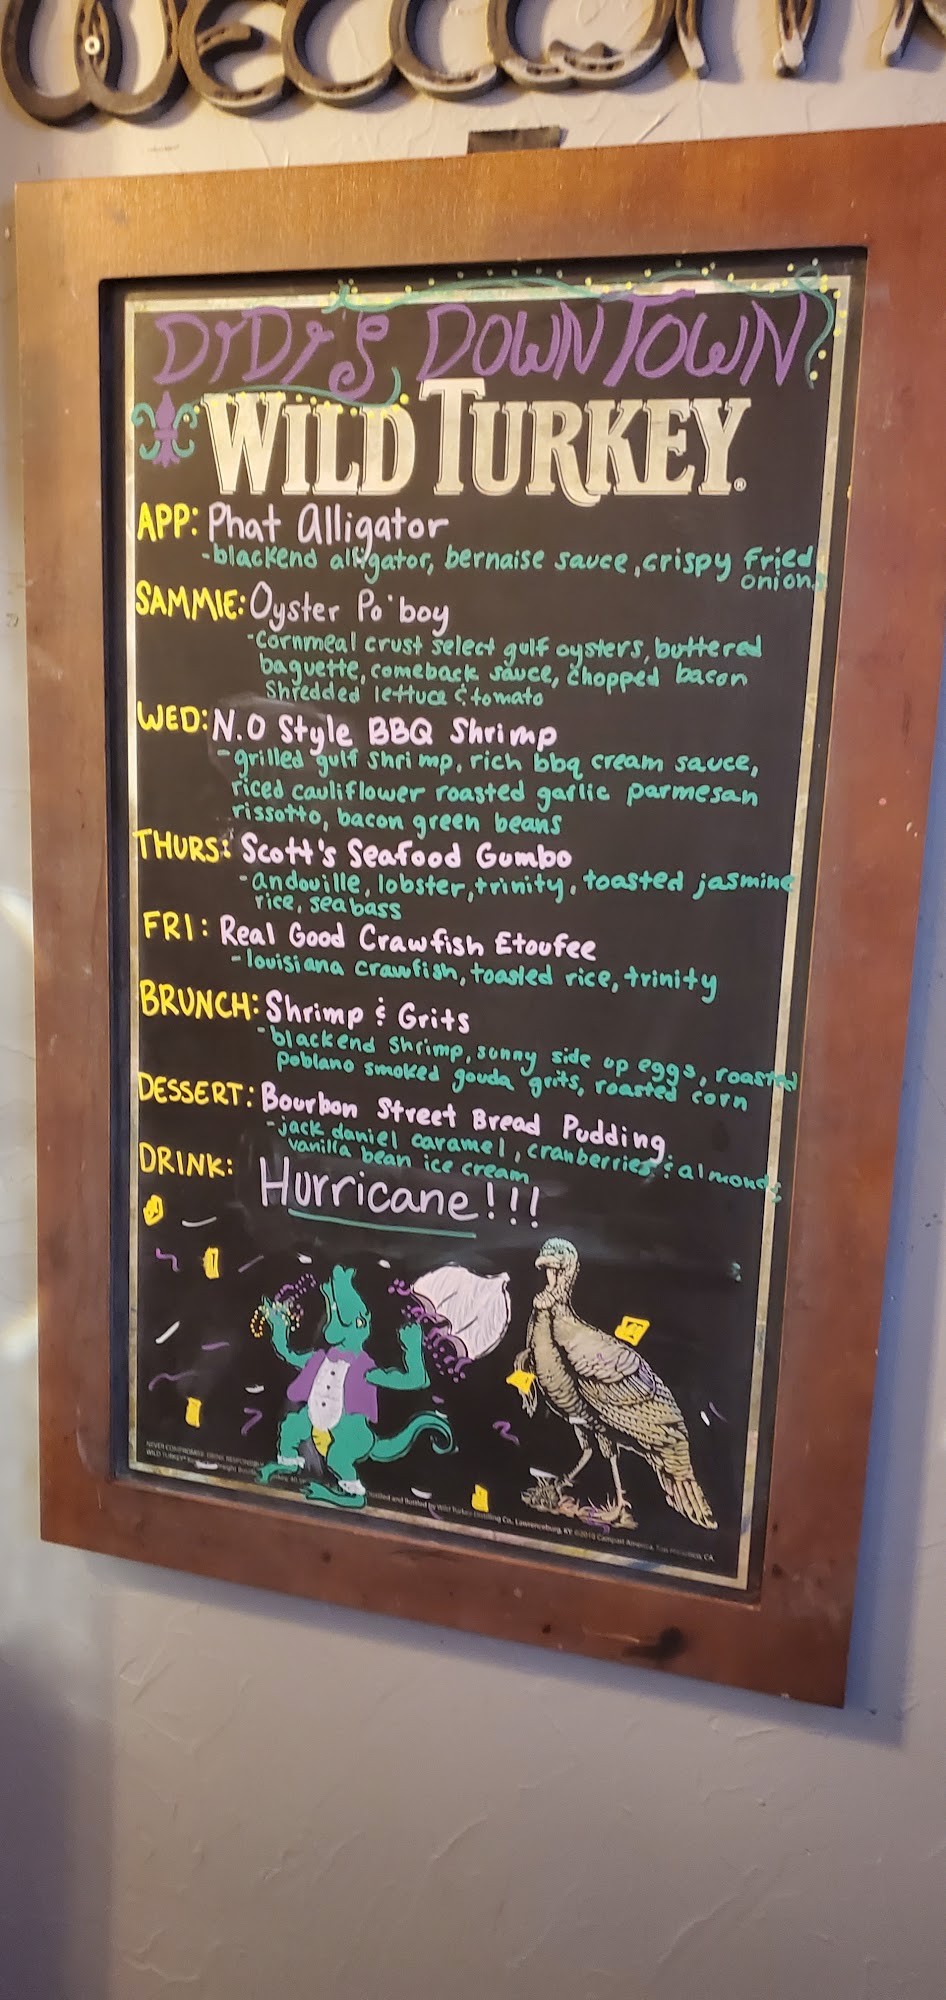 WELCOM
DYDY'S DOWNTOWN
WILD TURKEY®
APP: Phat Alligator
-blackend alligator, bernaise sauce, crispy fried
onions
SAMMIE: Oyster Po'boy
-cornmeal crust select gulf oysters, buttered
baguette, comeback sauce, chopped bacon
shredded lettuce & tomato
WED: N.O Style BBQ Shrimp
-grilled gulf shrimp, rich bbq cream sauce,
riced cauliflower roasted garlic parmesan
rissotto, bacon green beans
THURS: Scott's Seafood Gumbo
-andouille, lobster, trinity, toasted jasmine
rice, seabass
FRI: Real Good Crawfish Etoufee
-louisiana crawfish, toasted rice, trinity
BRUNCH: Shrimp & Grits
-blackend shrimp, sunny side up eggs, roasted
poblano smoked gouda grits, roasted corn
DESSERT: Bourbon Street Bread Pudding
-jack daniel caramel, cranberries & almonds
vanilla bean ice cream
DRINK: Hurricane!!!
NEVER COMPROMISE. DRINK RESPONSIBLY.
WILD TURKEY®
Distilled and Bottled by Wild Turkey Distilling Co., Lawrenceburg, KY ©2010 Campari America, San Francisco, CA.